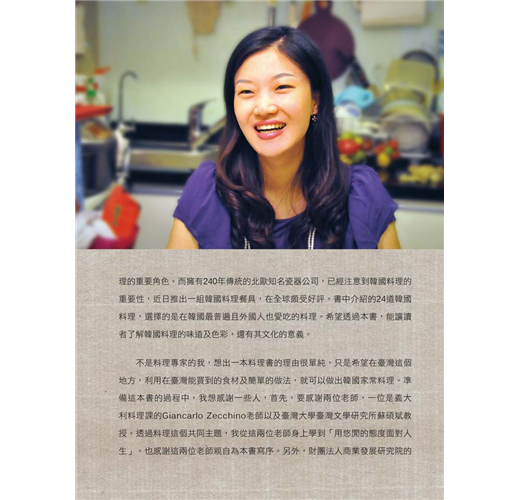 理的重要角色。而擁有240年傳統的北歐知名瓷器公司，已經注意到韓國料理的
重要性，近日推出一組韓國料理餐具，在全球頗受好評。書中介紹的24道韓國
料理，選擇的是在韓國最普遍且外國人也愛吃的料理。希望透過本書，能讓讀
者了解韓國料理的味道及色彩，還有其文化的意義。
不是料理專家的我，想出一本料理書的理由很單純，只是希望在臺灣這個
地方，利用在臺灣能買到的食材及簡單的做法，就可以做出韓國家常料理。準
備這本書的過程中，我想感謝一些人，首先，要感謝兩位老師，一位是義大
利料理課的Giancarlo Zecchino老師以及臺灣大學臺灣文學研究所蘇碩斌教
授。透過料理這個共同主題，我從這兩位老師身上學到「用悠閒的態度面對人
生」。也感謝這兩位老師親自為本書寫序。另外，財團法人商業發展研究院的